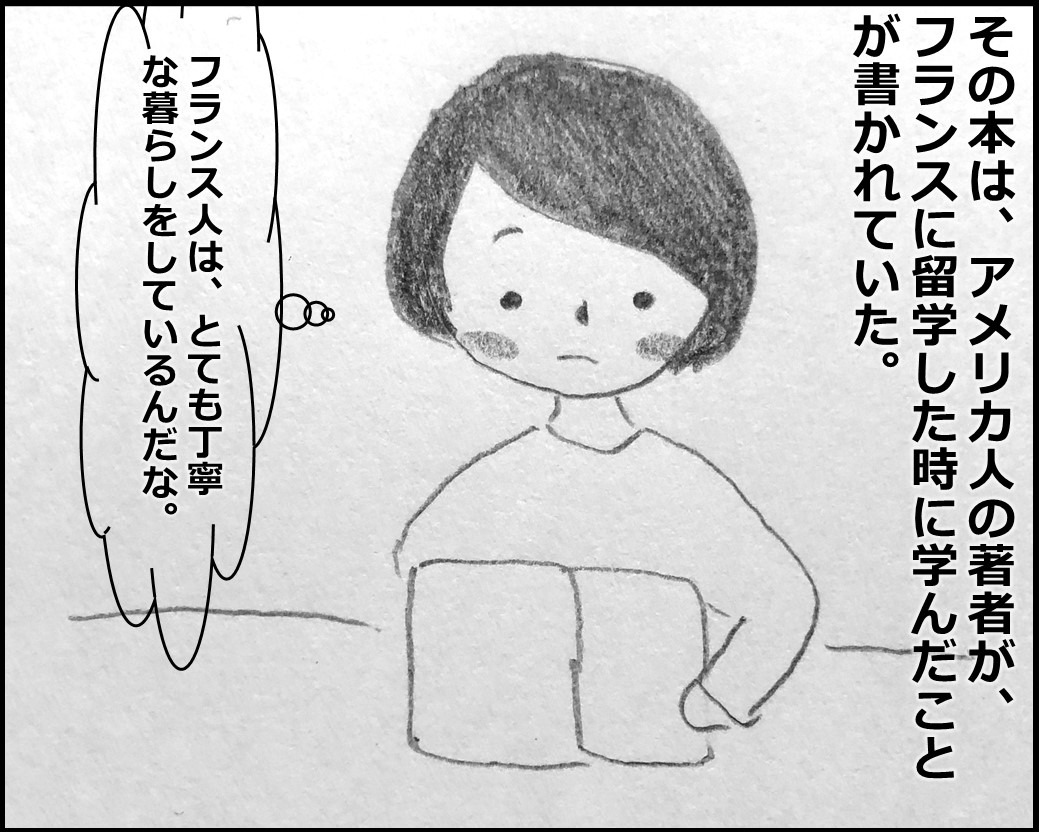 その本は、アメリカ人の著者が、
フランスに留学した時に学んだこと
が書かれていた。
フランス人は、とても丁寧
な暮らしをしているんだな。